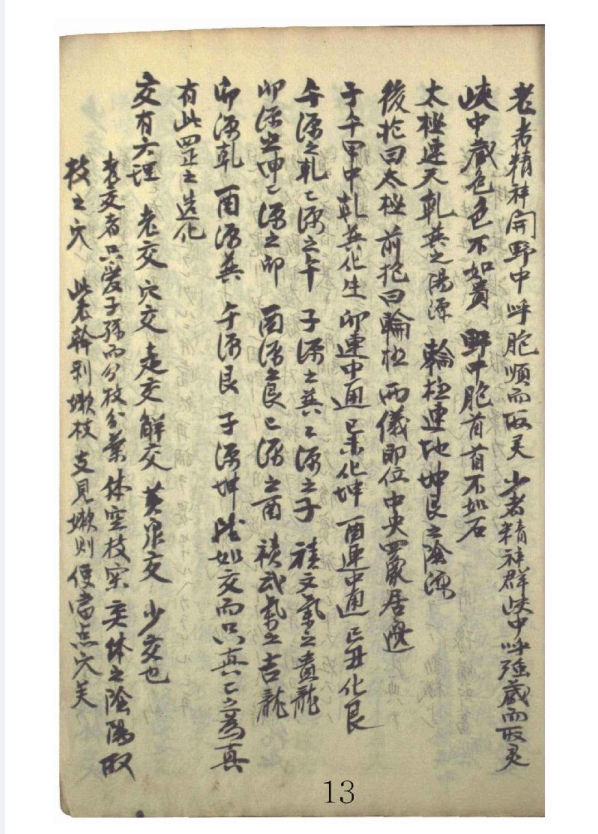 老者精神開野中呼胞順而取 少者精神群峽中呼 藏而取
峽中藏色色不如貴 野中胞首首不如石
太極連天乾巽之陽源 輪極連地坤艮之陰源
後抱曰太極 前抱曰輪極 兩儀即位中央 四象居邊
子午甲中乾巽化生 卯連中通 巳未化坤 酉連中通 巳丑化艮
午源之乾乾源之午 子源之巽巽源之子 積文氣之貴龍
卯源之坤坤源之卯 酉源之艮艮源之酉 積武氣之吉龍
卯源乾 酉源巽 午源艮 子源坤 雖如交而 真 之為真
有此 之造化
交有六理 老交 穴交 走交 解交 黃泉交 少交也
老交者只愛子孫而分枝分葉 体空枝实 交体之陰陽取
枝之穴 此老幹 嫩枝 見嫩則便當点穴矣
13